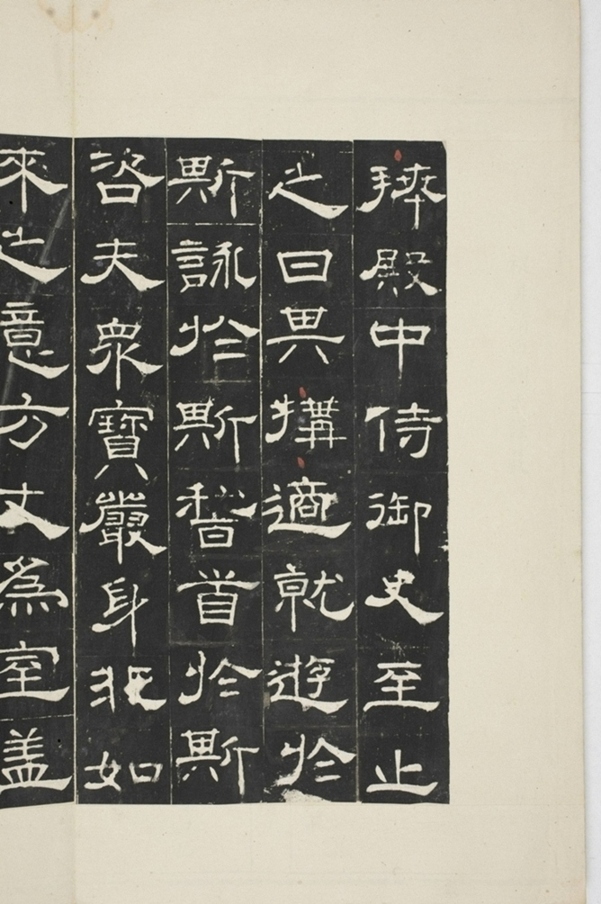 琫殿中侍御史至止
之日異構適就遊於
斯詠於斯稽首於斯
咨夫衆寶嚴身如
來之意方丈為室盖